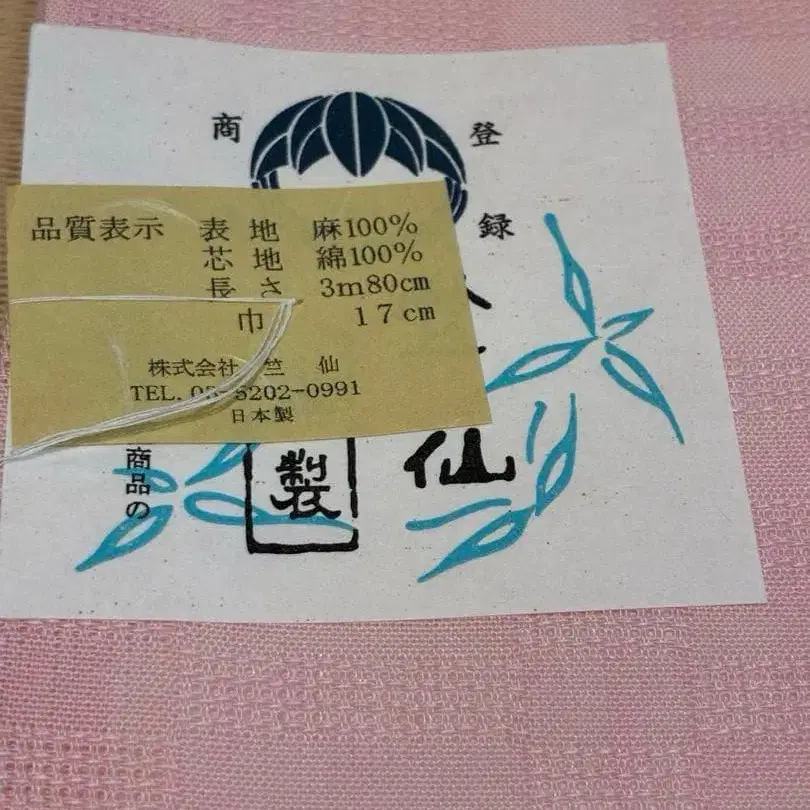 商 登
録
品質表示 表地 麻100%
芯地 綿100%
長さ 3m80cm
巾 17cm
株式会社 竺 仙
TEL. 03-5202-0991
日本製
仙
製
商品の